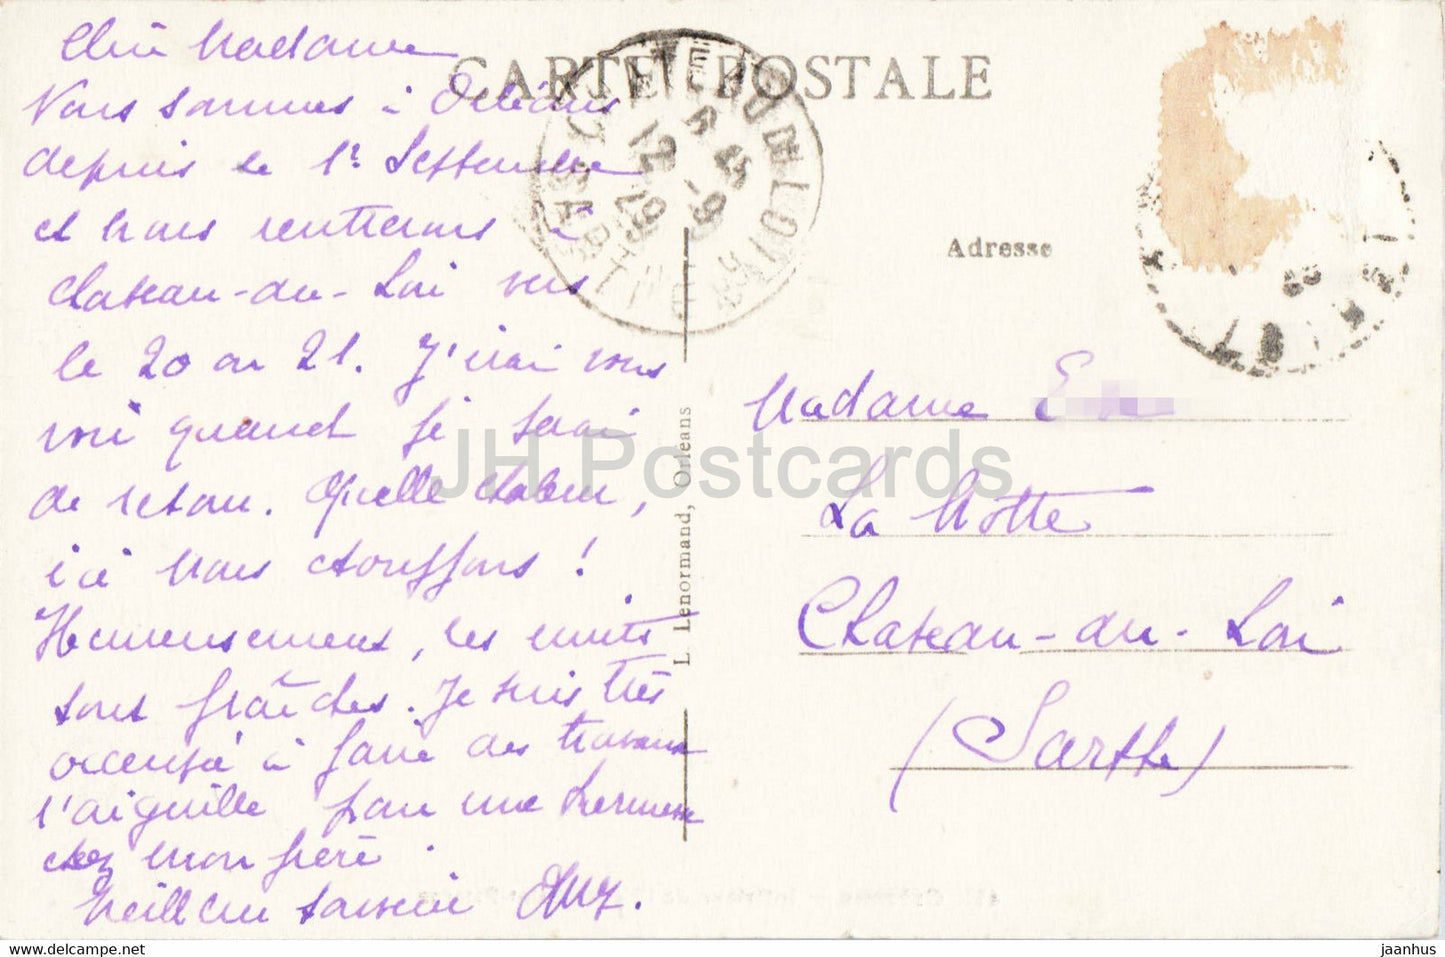 CARTE POSTALE
Chère Madame
Nous sommes à Orléans
depuis le 1er Septembre
et nous rentrerons à
Château-du-Loir vers
le 20 ou 21. J'irai vous
voir quand je serai
de retour. Quelle chaleur,
ici nous étouffons !
Heureusement, les nuits
sont fraîches. Je suis très
occupée à faire des travaux
l'aiguille pour une kermesse
chez mon frère.
Meilleur souvenir
Adresse
Madame E
La Motte
Château-du-Loir
(Sarthe)
L. Lenormand, Orléans
CHATEAU DU LOIR
SARTHE
12 45
-9
29
JH Postcards
jaanhus.eu - www.delcampe.net
jaanhus